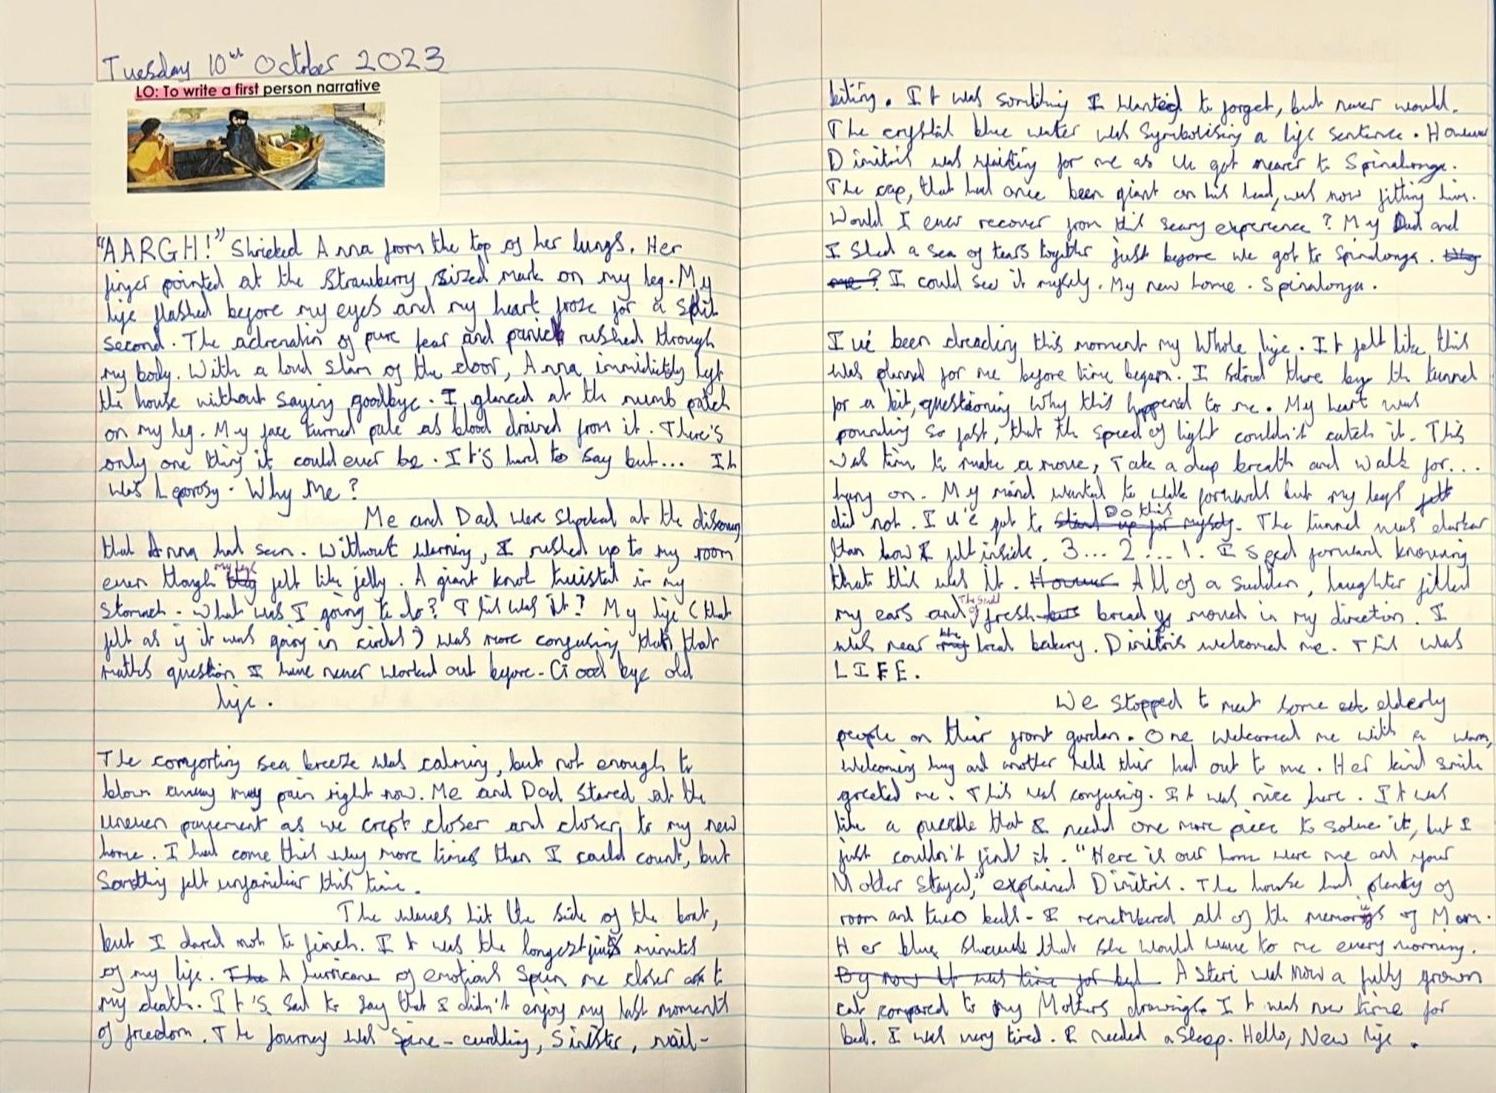 Tuesday 10th October 2023
LO: To write a first person narrative
"AARGH!" Shrieked Anna from the top of her lungs. Her
finger pointed at the strawberry sized mark on my leg. My
life flashed before my eyes and my heart froze for a split
second. The adrenalin of pure fear and panic rushed through
my body. With a loud slam of the door, Anna immidietly left
the house without saying goodbye. I glanced at the numb patch
on my leg. My face turned pale as blood drained from it. There's
only one thing it could ever be. It's hard to say but... It
was Leporosy. Why Me?
Me and Dad were shocked at the
that Anna had seen. Without warning, I rushed up to my room
even though my legs felt like jelly. A giant knot twisted in my
stomach. What was I going to do? This was it? My life (that
felt as if it was going in circles) was more confusing than that
maths question I have never worked out before. Good bye old
life.
The comforting sea breeze was calming, but not enough to
blow away my pain right now. Me and Dad stared at the
uneven pavement as we crept closer and closer, to my new
home. I had come this way more times than I could count, but
Something felt unfamiliar this time.
The waves hit the side of the boat,
but I dared not to flinch. It was the longest five minutes
of my life. A hurricane of emotions spun me closer to
my death. It's sad to say that I didn't enjoy my last moments
of freedom. The journey was Spine-curdling, Sinister, nail-
biting. It was something I wanted to forget, but never would.
The crystal blue water was symbolising a life sentence. However
Dimitris was waiting for me as we got nearer to Spinalonga.
The cap, that had once been giant on his head, was now fitting him.
Would I ever recover from this scary experience? My Dad and
I shed a sea of tears together just before we got to Spinalonga.
I could see it myself. My new home. Spinalonga.
I've been dreading this moment my whole life. It felt like this
was planned for me before time began. I stood there by the tunnel
for a bit, questioning why this happened to me. My heart was
pounding so fast, that the speed of light couldn't catch it. This
was time to make a move, Take a deep breath and walk for...
hang on. My mind wanted to walk forward but my legs
did not. I've got to Do this. The tunnel was darker
than how I felt inside 3... 2... 1. I sped forward knowing
that this was it. All of a sudden, laughter filled
my ears and The smell of fresh bread moved in my direction. I
was near the local bakery. Dimitris welcomed me. This was
LIFE.
We stopped to meet some elderly
people on their front garden. One welcomed me with a warm,
welcoming hug and another held their hand out to me. Her kind smile
greeted me. This was confusing. It was nice here. It was
like a puzzle that I need one more piece to solve it, but I
just couldn't find it. "Here is our home were me and your
Mother stayed," explained Dimitris. The house had plenty of
room and two beds. I remembered all of the memories of Mom.
Her blue shawl that she would wave to me every morning.
Asteri was now a fully grown
cat compared to my Mothers drawings. It was now time for
bed. I was very tired. I needed a sleep. Hello, New life.